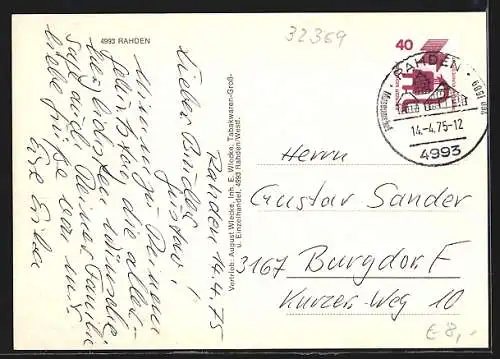 4993 RAHDEN
32369
Rahden 14.4.75
Lieber Bruder
Gustav!
Nun zu Deinem
die aller-
besten Wünsche
sagt auch Deiner Familie
liebe Grüße von uns
Eure Erika
Vertrieb: August Wlecke, Inh. E. Wlecke, Tabakwaren-Groß-
u. Einzelhandel, 4993 Rahden/Westf.
40
RAHDEN
14.-4.75-12
4993
Herrn
Gustav Sander
3167 Burgdorf
Kurzer-Weg 10
€ 8,-